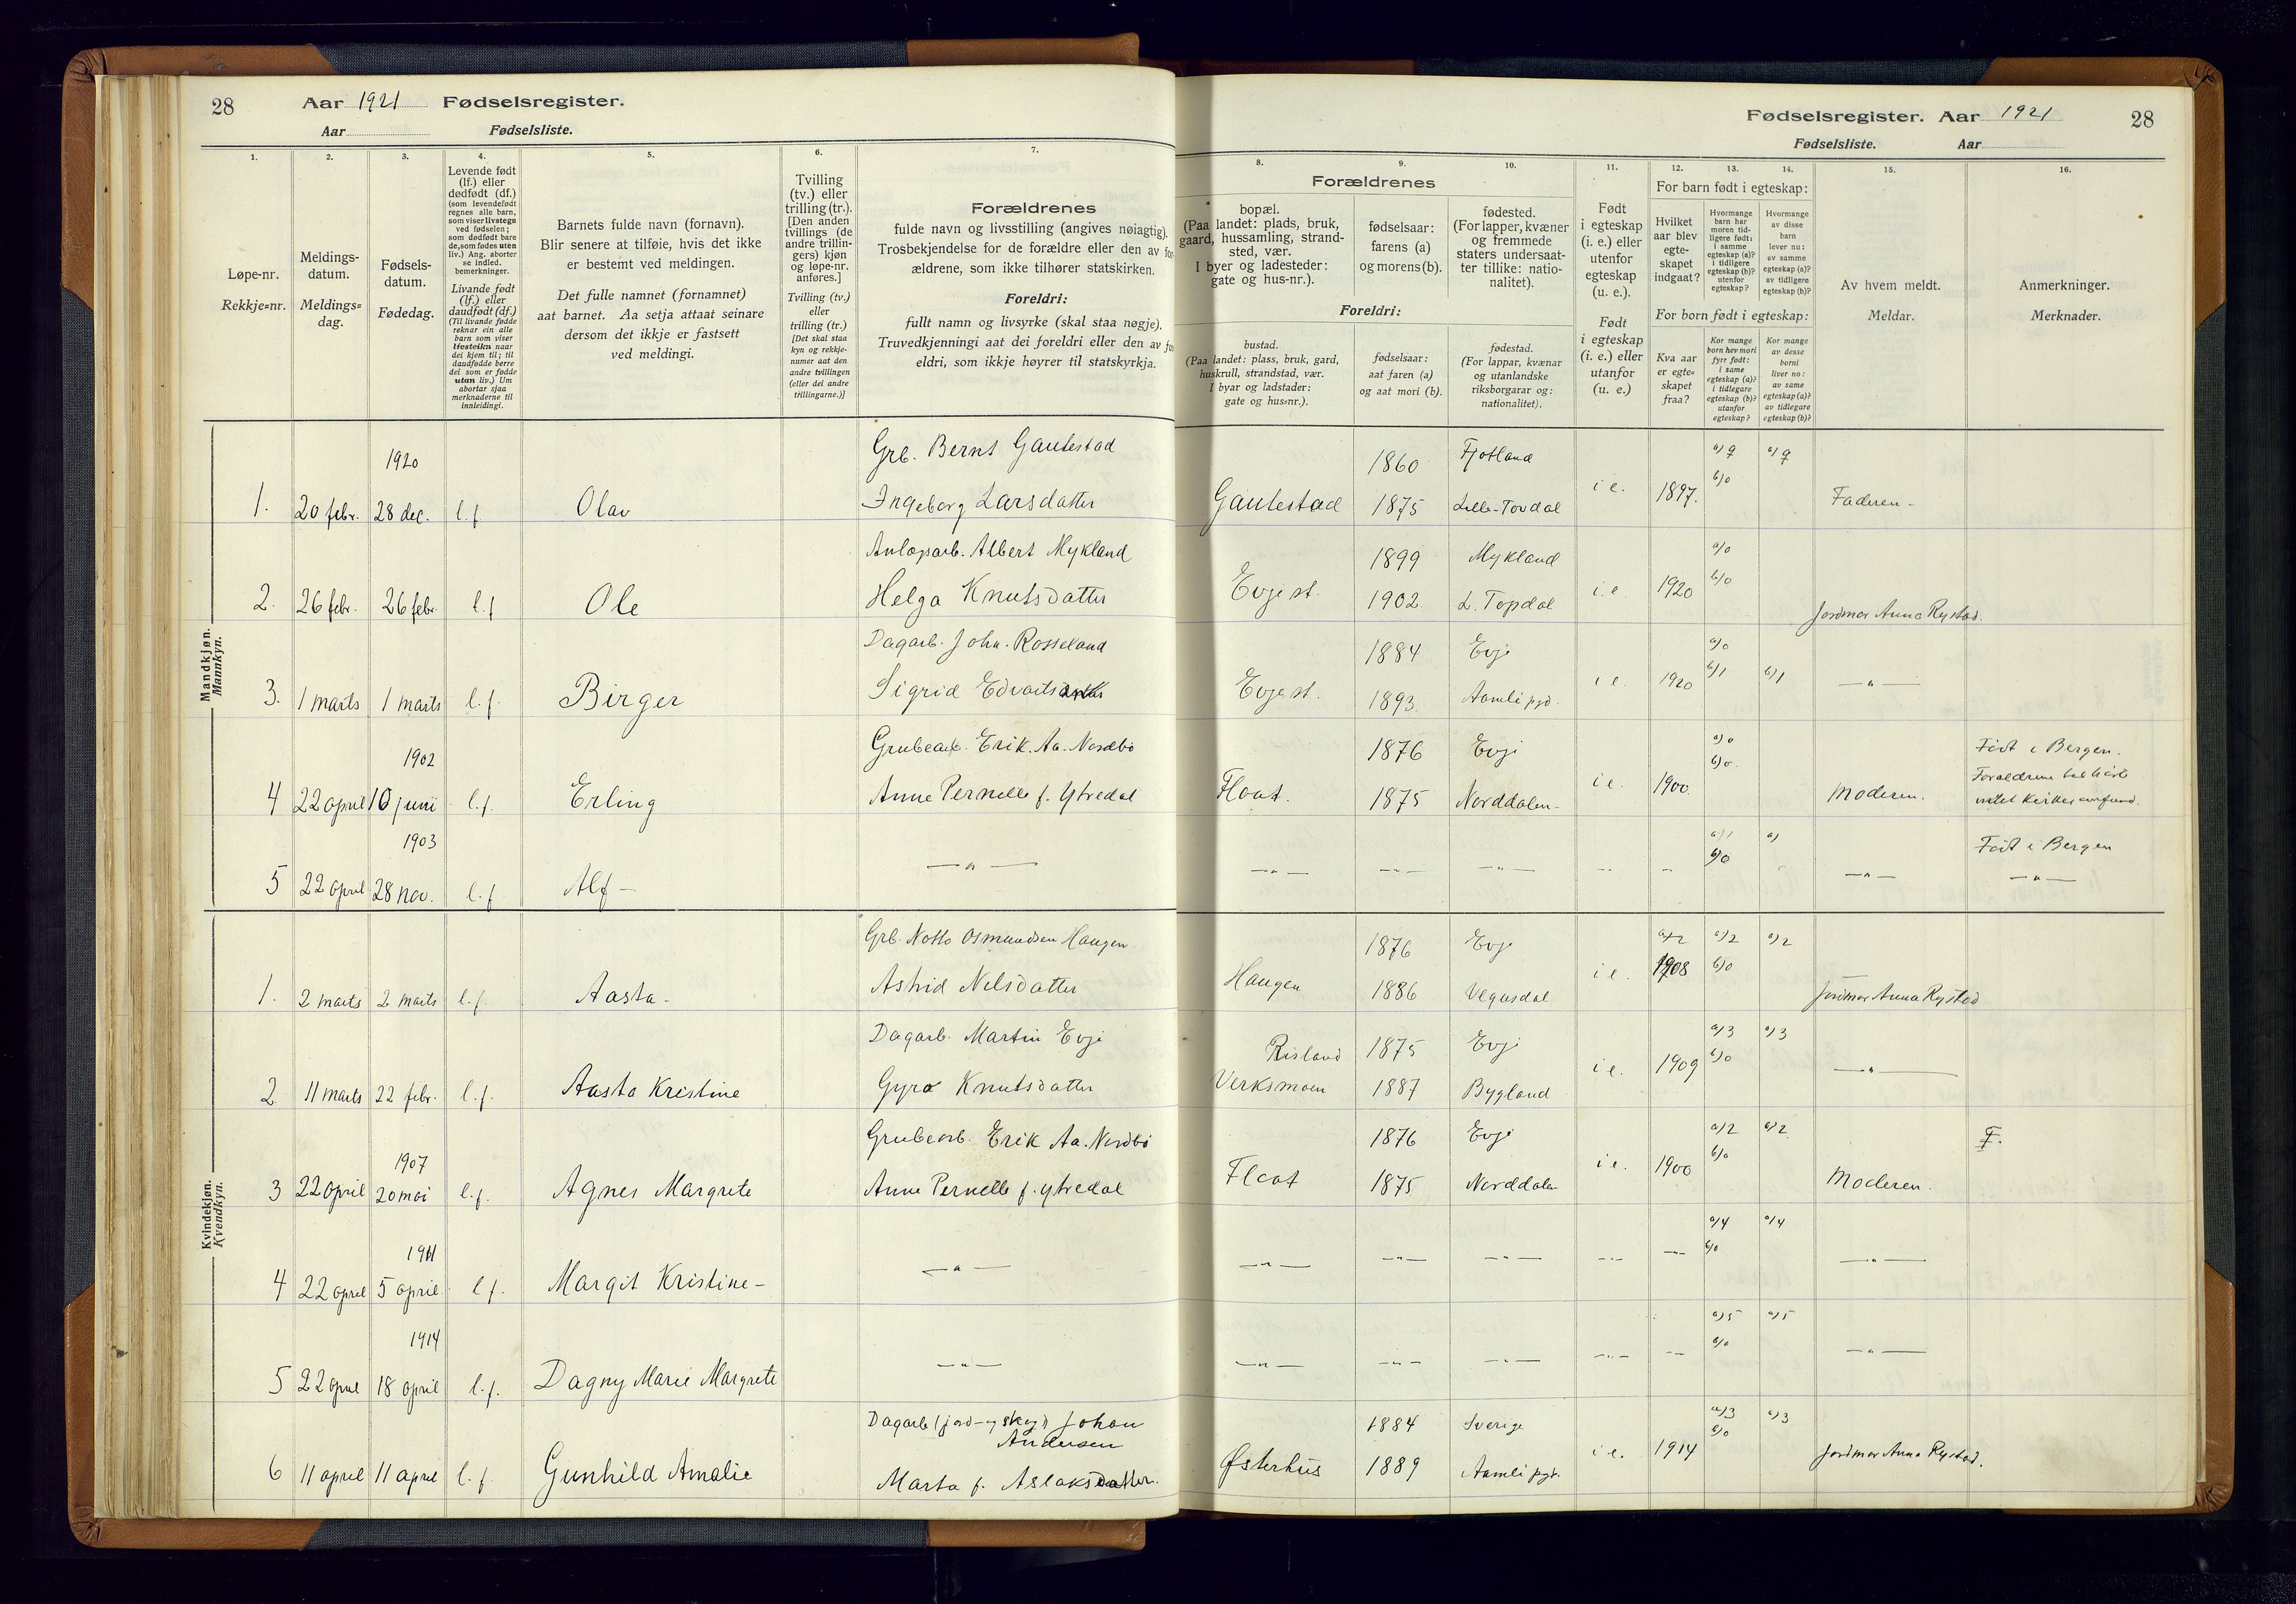 28 Aar 1921 Fødselsregister.
Aar Fødselsliste.
1. 2. 3. 4. 5. 6. 7.
Løpe-nr.
Rekkje=nr.
Meldings-
datum.
Meldings=
dag.
Fødsels-
datum.
Fødedag.
Levende født
(lf.) eller
dødfødt (df.)
(som levendefødt
regnes alle barn,
som viser livstegn
ved fødselen;
som dødfødt bare
de, som fødes uten
liv.) Ang. aborter
se indled.
bemerkninger.
Livande født
(lf.) eller
daudfødt (df.)
(Til livande fødde
reknar ein alle
barn som viser
livsteikn naar
dei kjem til; til
daudfødde berre
dei som er fødde
utan liv.) Um
abortar sjaa
merknaderne til
innleidingi.
Barnets fulde navn (fornavn).
Blir senere at tilføie, hvis det ikke
er bestemt ved meldingen.
Det fulle namnet (fornamnet)
aat barnet. Aa setja attaat seinare
dersom det ikkje er fastsett
ved meldingi.
Tvilling
(tv.) eller
trilling (tr.).
[Den anden
tvillings (de
andre trillin-
gers) kjøn
og løpe-nr.
anføres.]
Tvilling (tv.)
eller
trilling (tr.)
[Det skal staa
kyn og rekkje-
numer aat den
andre tvillingen
(eller dei andre
trillingarne.)]
Forældrenes
fulde navn og livsstilling (angives nøiagtig).
Trosbekjendelse for de forældre eller den av for-
ældrene, som ikke tilhører statskirken.
Foreldri:
fullt namn og livsyrke (skal staa nøgje).
Truvedkjenningi aat dei foreldri eller den av jo
eldri, som ikkje høyrer til statskyrkja.
Mandkjøn.
Mannkyn.
1920
Grb. Bernt Gautestad
1. 20 febr. 28 dec. l.f Olav Ingeborg Larsdatter
Anlægsarb. Albert Mykland
2. 26 febr. 26 febr. l.f Ole Helga Knutsdatter
Dagarb. John. Rosseland
3. 1 marts 1 marts l.f. Birger Sigrid
1902 Grubearb. Erik. Aa. Nordbø
4 22 april 10 juni l.f. Erling Anne Pernelle f. Ytredal
1903
5 22 april 28 nov. l.f Alf — — " —
Kvindekjøn.
Kvendkyn.
Grb. Notto Osmundsen Haugen
1. 2 marts 2 marts l.f. Aasta. Astrid Nilsdatter
Dagarb. Martin Evje
2 11 marts 22 febr. l.f. Aasta Kristine Gyro Knutsdatter
1907 Grubearb. Erik Aa. Nordbø
3 22 april 20 mai l.f. Agnes Margrete Anne Pernelle f. Ytredal
1911
4 22 april 5 april l f. Margit Kristine — — " —
1914
5 22 april 18 april l.f. Dagny Marie Margrete — " —
Dagarb (jord- og skog) Johan
Andersen
6 11 april 11 april l.f Gunhild Amalie Marta f. Aslaksdatter.
Fødselsregister. Aar 1921 28
Fødselsliste. Aar
8. 9. 10. 11. 12. 13. 14. 15. 16.
Forældrenes
bopæl.
(Paa landet: plads, bruk,
gaard, hussamling, strand-
sted, vær.
I byer og ladesteder:
gate og hus-nr.).
fødselsaar:
farens (a)
og morens (b).
fødested.
(For lapper, kvæner
og fremmede
staters undersaat-
ter tillike: natio-
nalitet).
Foreldri:
bustad.
(Paa landet: plass, bruk, gard,
huskrull, strandstad, vær.
I byar og ladstader:
gate og hus=nr.).
fødselsaar:
aat faren (a)
og aat mori (b).
fødestad.
(For lappar, kvænar
og utanlandske
riksborgarar og:
nationalitet).
Født
i egteskap
(i. e.) eller
utenfor
egteskap
(u. e.).
Født
i egteskap
(i. e.) eller
utanfor
(u. e.)
For barn født i egteskap:
Hvilket
aar blev
egte-
skapet
indgaat?
Hvormange
barn har
moren tid-
ligere født:
i samme
egteskap (a)?
i tidligere
egteskap (b)?
utenfor
egteskap?
Hvormange
av disse
barn
lever nu:
av samme
egteskap (a)?
av tidligere
egteskap (b)?
For born født i egteskap:
Kva aar
er egte=
skapet
fraa?
Kor mange
born hev mori
fyrr født:
i same
egteskap (a)?
i tidlegare
egteskap (b)?
utanfor
egteskap?
Kor mange
av desse
borni
liver no:
av same
egteskap (a)?
av tidlegare
egteskap (b)?
Av hvem meldt.
Meldar.
Anmerkninger.
Merknader.
1860 Fjotland a) 9 a) 9
Gautestad 1875 Lille-Tovdal i e. 1897. b) 0 Faderen -
1899 Mykland a) 0
Evje st. 1902 L. Topdal i. e. 1920 b) 0 Jordmor Anna Rystad.
1884 Evje a) 0
Evje st. 1893 Aamli pgd. i e. 1920 b) 1 b) 1 — " —
1876 Evje a) 0 Født i Bergen.
Flaat. 1875 Norddalen - i e. 1900 b) 0. Moderen. Forældrene
a) 1 a) Født i Bergen
— " — — " — — " — — " — " b) 0 — " — — " —
1876 Evje a) 2 a) 2 a) 2
Haugen 1886 Vegusdal i e. 1908 b) 0 Jordmor Anna Rystad
Risland 1875 Evje a) 3 a) 3
Verksmoen 1887 Bygland i e. 1909 b) 0 — " —
1876 Evje a) 2 a) 2. F.
Flaat 1875 Norddalen i e. 1900 b) 0 Moderen.
a) 4 a) 4
— " — — " — — " — — " — — " — b) 0 — " —
a) 5 a) 5
— " — — " — — " — — " — — " — b) 0 — " —
1884 Sverige a) 3 a) 3
Østerhus 1889 Aamli pgd. i e. 1914 b) 0 Jordmor Anna Rystad.